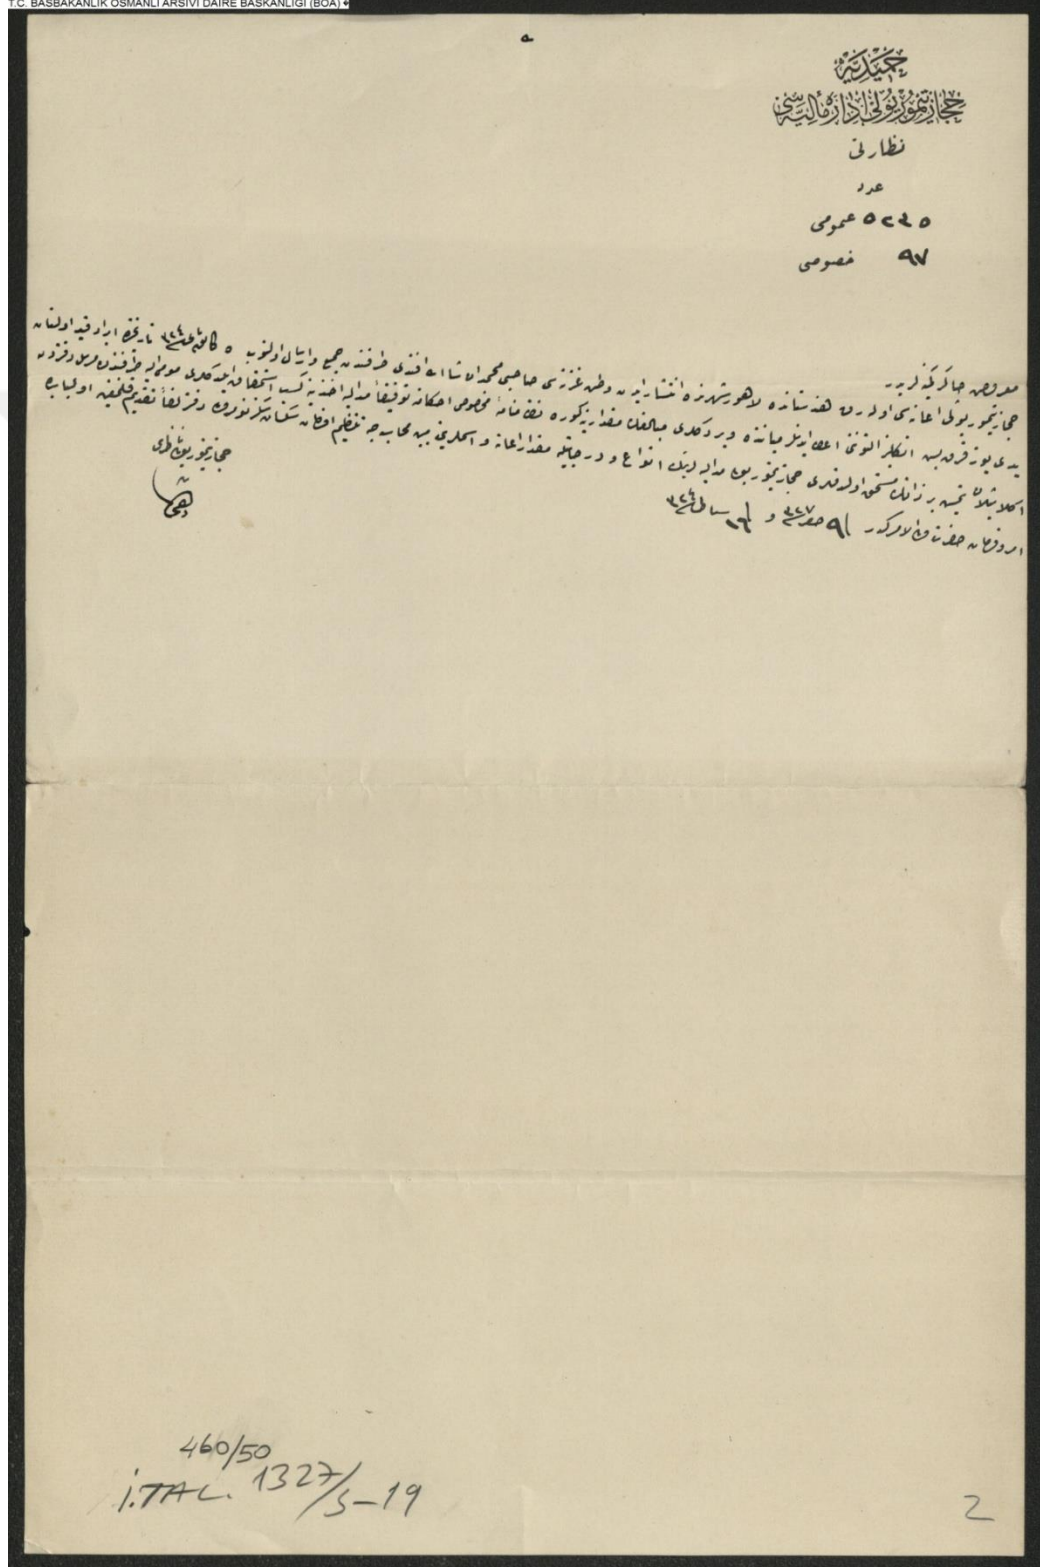 T.C. BASBAKANLIK OSMANLI ARSIVI DAIRE BASKANLIGI (BOA)
حميديه
حجاز تيمور يولى اداره ماليه سى
نظارتى
عدد
٥٢٣٥ عمومى
٩٧ خصوصى
معروض چاكر كمينه لريدر
حجاز تيمور يولى اعانه سى اوله رق هندستانده لاهور شهرنده انتشار ايدن وطن غزته سى صاحبى محمد ان شاء الله افندى طرفندن جمع و ارسال اولنوب ٥ تاريخنده ايراد قيد اولنان
يدى يوز قرق بش انكليز التوننى اعطا ايدنلر ميانده ويردكلرى مبالغك مقدارينه كوره نظامنامه مخصوصى احكامنه توفيقا مداليه اخذينه كسب استحقاق ايدكلرى مومى اليه طرفندن مرسل دفتردن
اكلاشيلان يتمش بر ذاتك مستحق اولدقلرى حجاز تيمور يولى مداليه لرينك انواع و درجاتيله مقدار اعانه و اسملرينى مبين محاسبه جه تنظيم اولنان دفتر لفا تقديم قلنمغله اولبابده
امر و فرمان حضرت من له الامركدر ٣٢٧ و ٣٢٤
حجاز تيمور يولى ناظرى
460/50
İ.TAL. 1327/S-19
2